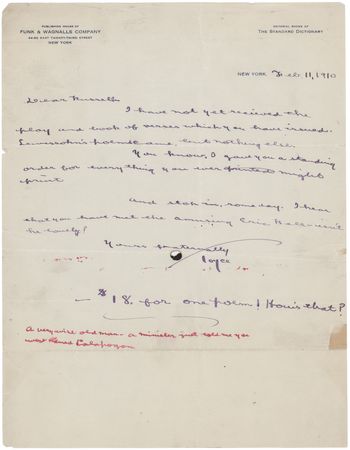 PUBLISHING HOUSE OF
FUNK & WAGNALLS COMPANY
44-60 EAST TWENTY-THIRD STREET
NEW YORK
EDITORIAL ROOMS OF
THE STANDARD DICTIONARY
NEW YORK, Feb 11, 1910
Dear Russell:
I have not yet recieved the
play and book of verses which you have issued.
Lewissohn's poem came, but nothing else.
You know, I gave you a standing
order for everything you ever printed might
print
And stop in, some day. I hear
that you have met the amusing Eric Bell - isn't
he lovely?
Yours fraternally
Joyce
- $18. for one poem! How's that?
A very wise old man - a minister just told me you